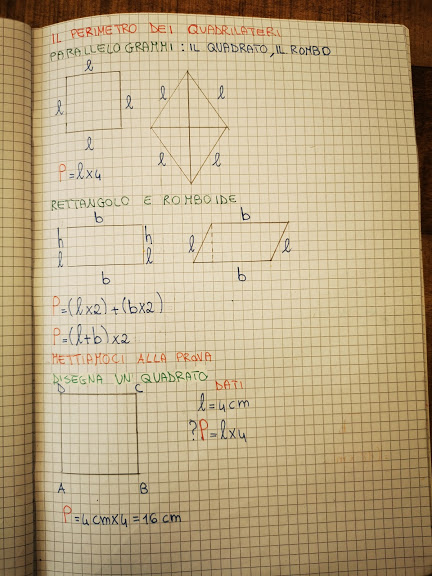 IL PERIMETRO DEI QUADRILATERI
PARALLELOGRAMMI: IL QUADRATO, IL ROMBO
l
l l l l
l l l
P=lx4
RETTANGOLO E ROMBOIDE
b b
h h
l l l l
b b
P=(lx2)+(bx2)
P=(l+b)x2
METTIAMOCI ALLA PROVA
DISEGNA UN QUADRATO
D C DATI
l=4cm
?P=lx4
A B
P=4cmx4=16cm